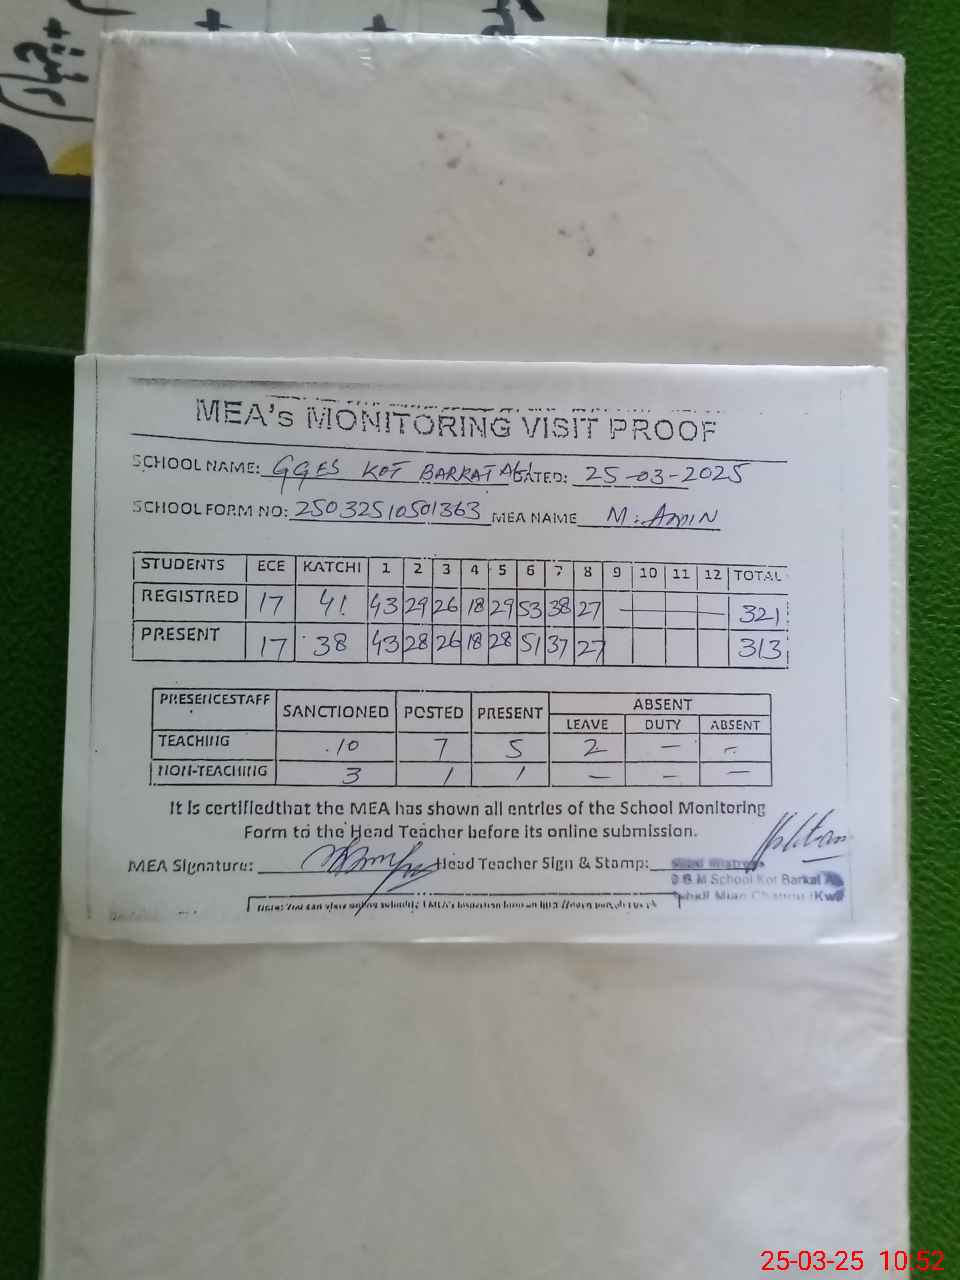 MEA's MONITORING VISIT PROOF
SCHOOL NAME: GGES KOT BARKAT Ali DATED: 25-03-2025
SCHOOL FORM NO: 25032510501363 MEA NAME M. AMIN
STUDENTS ECE KATCHI 1 2 3 4 5 6 7 8 9 10 11 12 TOTAL
REGISTRED 17 41 43 29 26 18 29 53 38 27 — — — — 321
PRESENT 17 38 43 28 26 18 28 51 37 27 313
PRESENCESTAFF SANCTIONED POSTED PRESENT ABSENT
LEAVE DUTY ABSENT
TEACHING 10 7 5 2 — —
NON-TEACHING 3 1 1 — — —
It is certifiedthat the MEA has shown all entries of the School Monitoring
Form to the Head Teacher before its online submission.
MEA Signature: Head Teacher Sign & Stamp:
School Kot Barkat
25-03-25 10:52